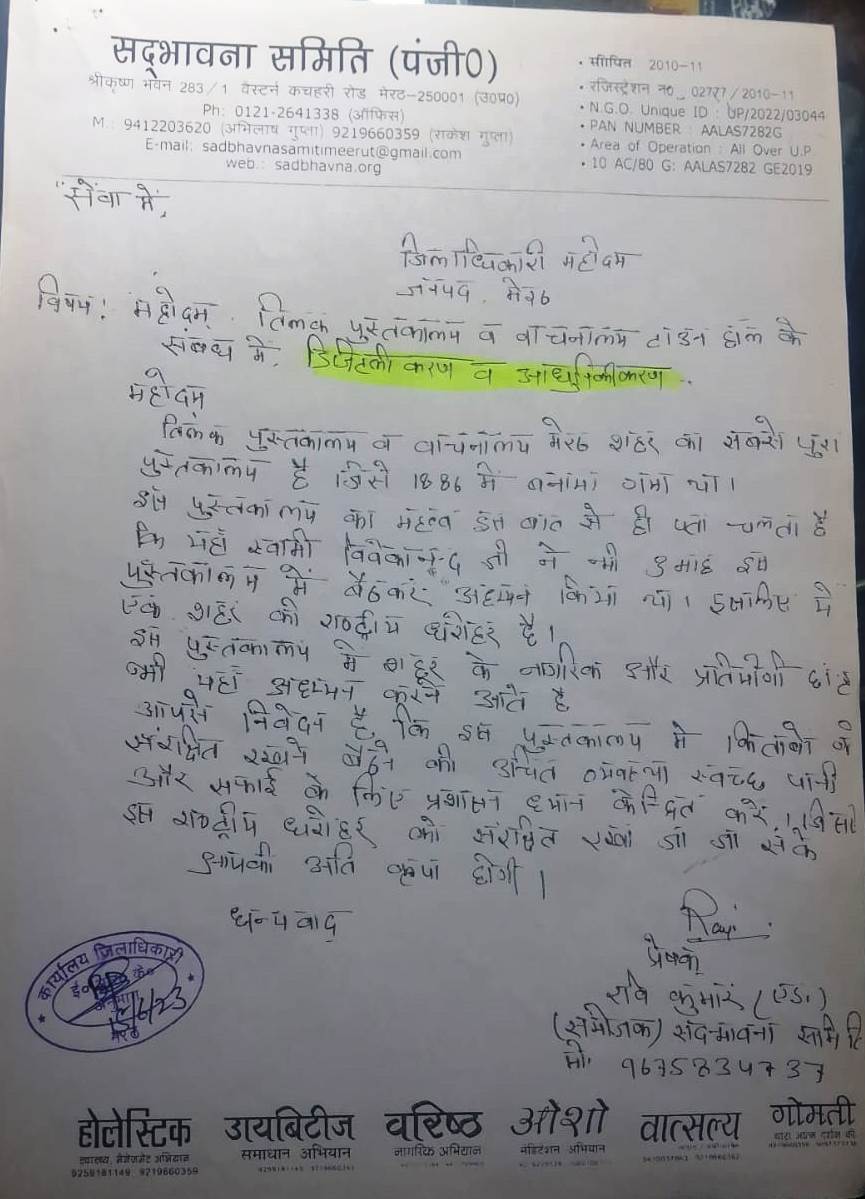 सद्भावना समिति (पंजी0)
श्रीकृष्ण भवन 283/1 वैस्टर्न कचहरी रोड मेरठ-250001 (उ0प्र0)
Ph: 0121-2641338 (ऑफिस)
M.: 9412203620 (अभिलाष गुप्ता) 9219660359 (राकेश गुप्ता)
E-mail: sadbhavnasamitimeerut@gmail.com
web.: sadbhavna.org
• स्थापित 2010-11
• रजिस्ट्रेशन न0 02777/2010-11
• N.G.O. Unique ID : UP/2022/03044
• PAN NUMBER : AALAS7282G
• Area of Operation : All Over U.P
• 10 AC/80 G: AALAS7282 GE2019
"सेवा में,
जिलाधिकारी महोदय
जनपद, मेरठ
विषय: महोदय, तिलक पुस्तकालय व वाचनालय टाउन हाल के
संबध में, डिजिटली करण व आधुनिकीकरण.
महोदय
तिलक पुस्तकालय व वाचनालय मेरठ शहर का सबसे पुरा
पुस्तकालय है जिसे 1886 में बनाया गया था।
इस पुस्तकालय का महत्व इस बात से ही पता चलता है
कि यहाँ स्वामी विवेकानन्द जी ने भी माह इस
पुस्तकालय में बैठकर अध्ययन किया था। इसलिए ये
एक शहर की राष्ट्रीय धरोहर है।
इस पुस्तकालय में शहर के नागरिक और प्रतियोगी छात्र
भी यहाँ अध्ययन करने आते है
आपसे निवेदन है कि इस पुस्तकालय में किताबो को
संरक्षित रखने बैठने की उचित व्यवस्था स्वच्छ पानी
और सफाई के लिए प्रशासन ध्यान केन्द्रित करे, जिससे
इस राष्ट्रीय धरोहर को संरक्षित रखा जा जा सके
आपकी अति कृपा होगी।
धन्यवाद
Ravi
प्रेषक
रवि कुमार (एड.)
(संयोजक) सदभावना समिति
मो. 9675834737
कार्यालय जिलाधिकारी
मेरठ
होलेस्टिक डायबिटीज वरिष्ठ ओशो वात्सल्य गोमती
स्वास्थ्य, मैनेजमेंट अभियान समाधान अभियान नागरिक अभियान मेडिटेशन अभियान
9259181149 9219660359 9259181149 9219660359